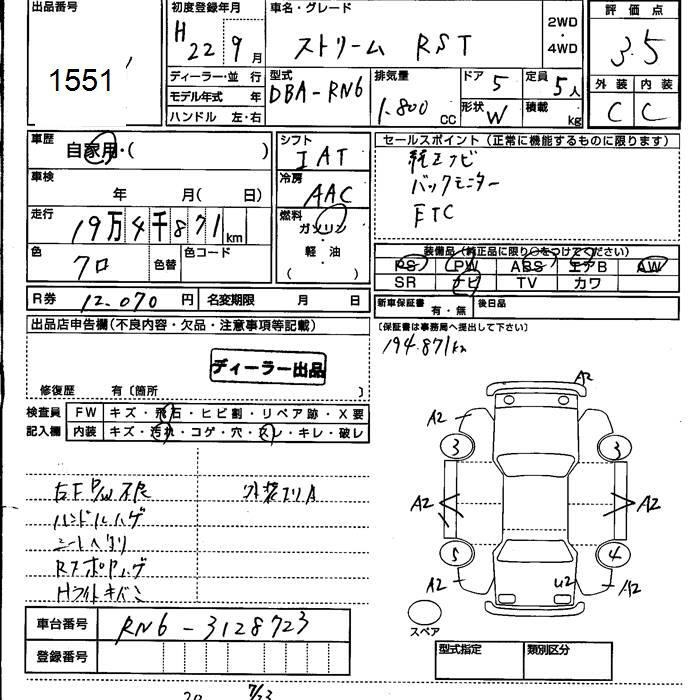 出品番号
1551
初度登録年月
H 22 9 月
ディーラー・並 行
モデル年式 年
ハンドル 左・右
車名・グレード
ストリーム RST
2WD
・
4WD
型式
DBA-RN6
排気量
1.800 cc
ドア 5
形状 W
定員 5人
積載 kg
評 価 点
3.5
外 装 内 装
C C
車歴
自家用・( )
車検
年 月( 日)
走行
19万4千871 km
色
クロ
色替
色コード
シフト
IAT
冷房
AAC
燃料
ガソリン
・
軽・油
( )
R券 12.070 円
名変期限 月 日
セールスポイント (正常に機能するものに限ります)
純正ナビ
バックモニター
ETC
装備品 (純正品に限り○をつけてください)
PS PW ABS エアB AW
SR ナビ TV カワ
新車保証書
有・無
後日品
(保証書は事務局へ提出して下さい)
194.871km
出品店申告欄(不良内容・欠品・注意事項等記載)
ディーラー出品
修復歴 有〔箇所 〕
検査員
記入欄
FW キズ・飛石・ヒビ割・リペア跡・X要
内装 キズ・汚れ・コゲ・穴・スレ・キレ・破レ
右F P/W不良
ハンドルハゲ
シートヘタリ
Hライトキバミ
A2
A2
A2
3
3
A2
A2
5
4
A2
U2
A2
スペア
車台番号 RN6-3128723
登録番号
型式指定
類別区分
20 7/23